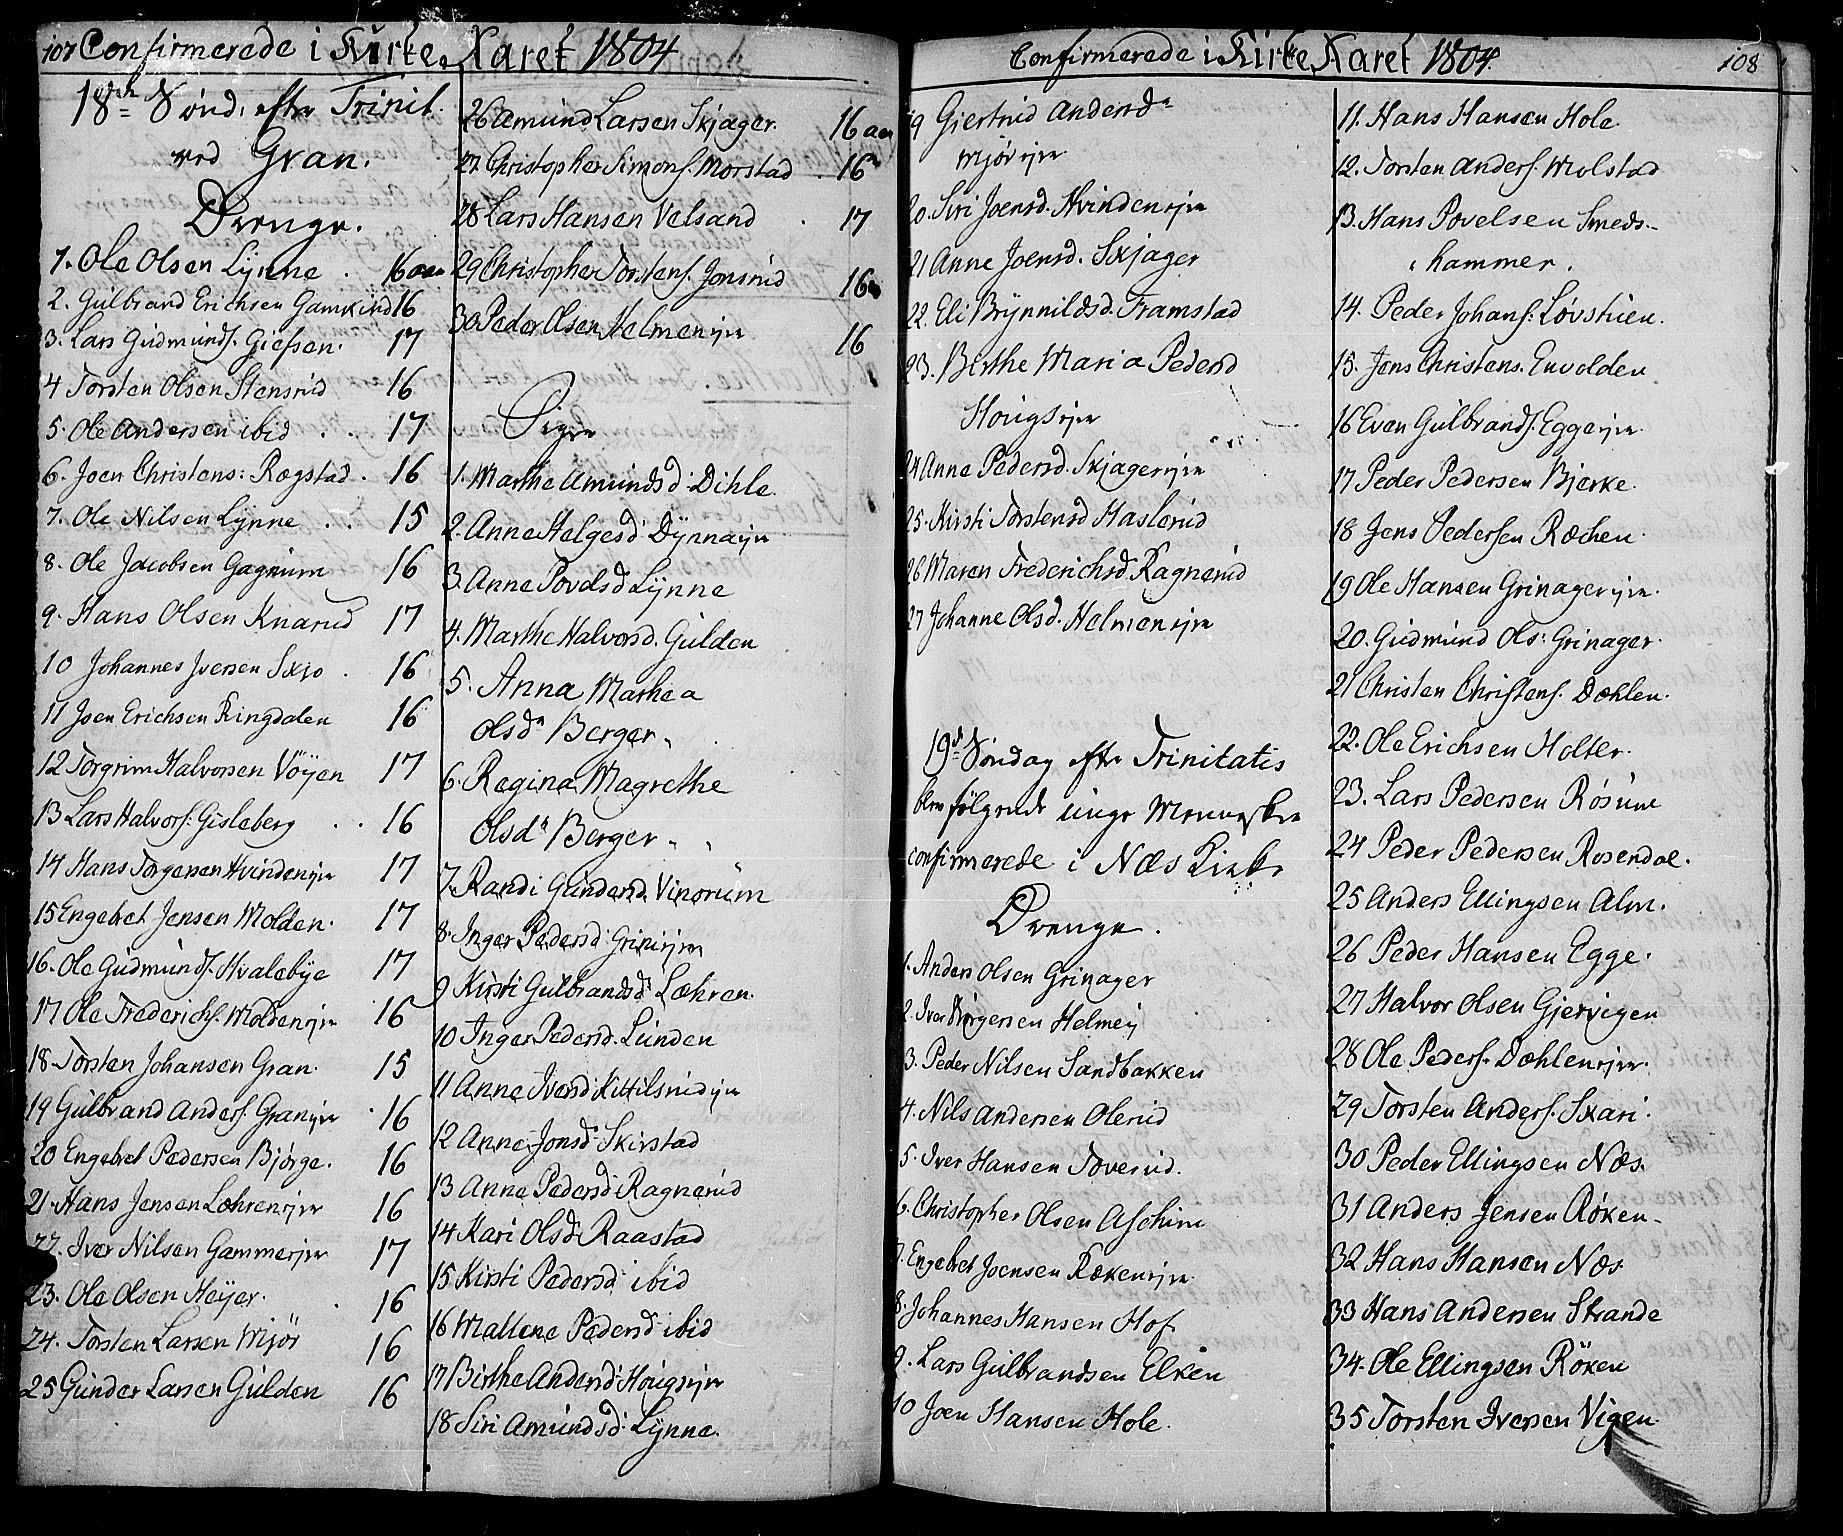 107 Confirmerede i Kirke Aaret 1804
18de Sönd. efter Trinit.
ved Gran.
Drenge.
1. Ole Olsen Lÿnne . 16 aar
2. Gulbrand Erichsen Gamkind 16
3. Lars Gudmunds. Giefsen. 17
4 Torsten Olsen Stensrud 16
5. Ole Andersen ibid . . 17
6. Joen Christens: Rægstad . 16
7. Ole Nilsen Lÿnne . . 15
8. Ole Jacobsen Gagnum 16
9. Hans Olsen Knarud 17
10 Johannes Iversen Skjo . 16
11 Joen Erichsen Ringdalen 16
12 Torgrim Halvorsen Vöÿen 17
13 Lars Halvors: Gisleberg . . 16
14 Hans Torgersen Hvindenejer 17
15 Engebret Jensen Molden. 17
16. Ole Gudmunds. Hvalebÿe 17
17 Ole Frederichs. Moldenejer 16
18. Torsten Johansen Gran. 15
19 Gulbrand Anders. Granejer . 16
20 Engebret Pedersen Bjørge. 16
21. Hans Jensen Lœhrenejer 16
22. Iver Nilsen Gammeejer 17
23. Ole Olsen Heÿer. . 16
24. Torsten Larsen Mjör 16
25 Gunder Larsen Gulden 16
26 Amund Larsen Skjager. 16 aar
27. Christopher Simons. Morstad . 16
28 Lars Hansen Velsand . 17
29 Christopher Torstens. Jonsrud 16
30 Peder Olsen Helmenejer 16
Piger
1. Marthe Amundsd. Dihle.
2. Anne Helgesd. Dÿnnaejer
3. Anne Povelsd Lÿnne
4. Marthe Halvorsd. Gulden
5. Anna Marthea
Olsdr Berger.
6. Regina Magrethe
Olsdr Berger.
7. Randi Gundersd. Vinorum
8. Inger Pedersd. Griniejer
9 Kirsti Gulbrandsd. Lœhren.
10 Inger Pedersd. Lunden
11 Anne Iversd. Kittilsrudejer
12 Anne Jonsd. Skirstad
13 Anne Pedersd. Ragnerud
14 Kari Olsd. Raastad
15 Kirsti Pedersd ibid
16 Mallene Pedersd ibid
17 Birthe Andersd. Hougsejer
18 Siri Amundsd. Lÿnne.
Confirmerede i Kirke Aaret 1804. 108
19 Giertrud Andersdr
Mjörejer
20. Siri Joensd. Hvindenejer
21 Anne Joensd. Skjager
22. Eli Brÿnnildsd. Framstad
23. Berthe Maria Pedersd
Hougsejer
24 Anne Pedersd. Skjagerejer
25. Kirsti Torstensd Haslerud
26 Maren Frederichsd Ragnerud
27 Johanne Olsd. Helmenejer
19de Söndag efter Trinitatis
blev følgende unge Mennesker
confirmerede i Næs Kirke
Drenge.
1. Anders Olsen Grinager
2. Iver Börgersen Helmeÿ
3. Peder Nilsen Sandbakken
4. Nils Andersen Olerud
5. Iver Hansen Toverud.
6. Christopher Olsen Aschim
7. Engebret Joensen Rækenejer
8. Johannes Hansen Hof
9. Lars Gulbrandsen Elken
10 Joen Hansen Hole.
11. Hans Hansen Hole.
12. Torsten Anders. Molstad
13. Hans Povelsen Smeds-
hammer.
14. Peder Johans: Løvstuen.
15. Jens Christens. Envolden
16 Even Gulbrands. Eggeejer.
17 Peder Pedersen Bjerke.
18 Jens Pedersen Ræchen.
19 Ole Hansen Grinagerejer.
20. Gudmund Ols: Grinager.
21 Christen Christens. Dœhlen.
22. Ole Erichsen Holter.
23. Lars Pedersen Røsum
24 Peder Pedersen Rosendal.
25 Anders Ellingsen Alm.
26 Peder Hansen Egge.
27 Halvor Olsen Gjervigen
28 Ole Peders. Dœhlenejer.
29 Torsten Anders. Skari.
30 Peder Ellingsen Næs.
31 Anders Jensen Røken.
32 Hans Hansen Næs
33 Hans Andersen Strande
34. Ole Ellingsen Røken
35 Torsten Iversen Vigen.